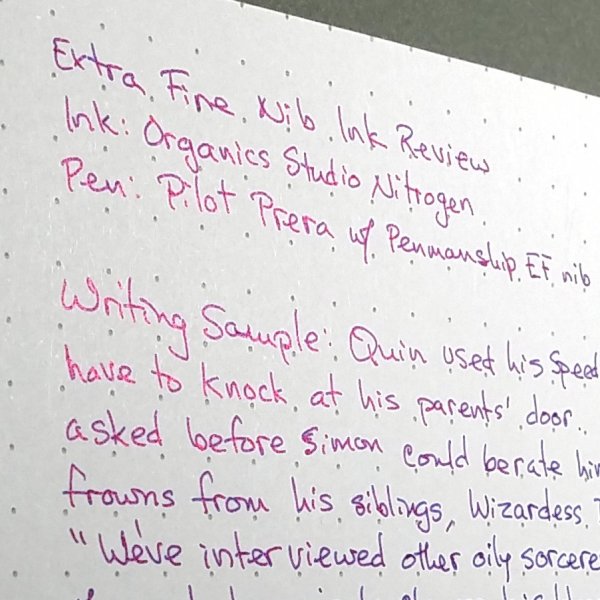 Extra Fine Nib Ink Review
Ink: Organics Studio Nitrogen
Pen: Pilot Prera w/ Penmanship EF nib
Writing Sample: Quin used his Speed
have to knock at his parents' door.
asked before Simon could berate him
frowns from his siblings, Wizardess
"We've interviewed other oily sorcere